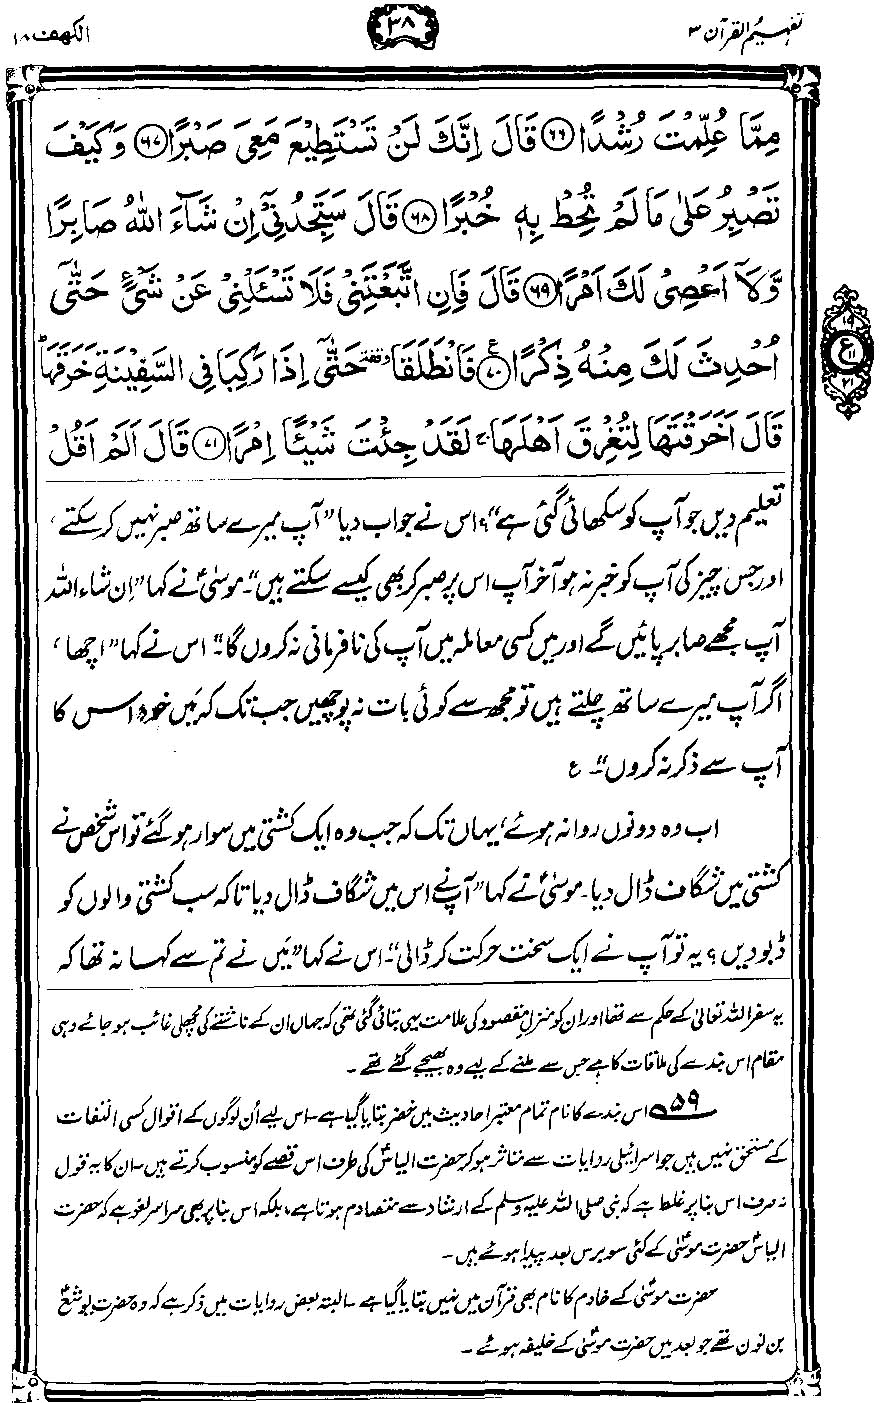 تفہیم القرآن ۳
۳۸
الکھف ۱۸
مِمَّا عُلِّمْتَ رُشْدًا ﴿۶۶﴾ قَالَ اِنَّكَ لَنْ تَسْتَطِيْعَ مَعِيَ صَبْرًا ﴿۶۷﴾ وَكَيْفَ
تَصْبِرُ عَلٰى مَا لَمْ تُحِطْ بِهٖ خُبْرًا ﴿۶۸﴾ قَالَ سَتَجِدُنِيْٓ اِنْ شَآءَ اللّٰهُ صَابِرًا
وَّلَآ اَعْصِيْ لَكَ اَمْرًا ﴿۶۹﴾ قَالَ فَاِنِ اتَّبَعْتَنِيْ فَلَا تَسْـَٔلْنِيْ عَنْ شَيْءٍ حَتّٰٓى
اُحْدِثَ لَكَ مِنْهُ ذِكْرًا ﴿۷۰﴾ ع فَانْطَلَقَا وقفة حَتّٰٓى اِذَا رَكِبَا فِي السَّفِيْنَةِ خَرَقَهَا ط
قَالَ اَخَرَقْتَهَا لِتُغْرِقَ اَهْلَهَا ج لَقَدْ جِئْتَ شَيْـًٔا اِمْرًا ﴿۷۱﴾ قَالَ اَلَمْ اَقُلْ
۱۹
ع ۱۱
۲۱
تعلیم دیں جو آپ کو سکھائی گئی ہے"؟ اس نے جواب دیا "آپ میرے ساتھ صبر نہیں کر سکتے،
اور جس چیز کی آپ کو خبر نہ ہو آخر آپ اس پر صبر کر بھی کیسے سکتے ہیں"۔ موسیٰؑ نے کہا "اِن شاء اللہ
آپ مجھے صابر پائیں گے اور میں کسی معاملہ میں آپ کی نافرمانی نہ کروں گا"۔ اس نے کہا "اچھا،
اگر آپ میرے ساتھ چلتے ہیں تو مجھ سے کوئی بات نہ پوچھیں جب تک کہ مَیں خود اس کا
آپ سے ذکر نہ کروں"۔ ع
اب وہ دونوں روانہ ہوئے، یہاں تک کہ جب وہ ایک کشتی میں سوار ہو گئے تو اس شخص نے
کشتی میں شگاف ڈال دیا۔ موسیٰؑ نے کہا "آپ نے اس میں شگاف ڈال دیا تاکہ سب کشتی والوں کو
ڈبو دیں؟ یہ تو آپ نے ایک سخت حرکت کر ڈالی"۔ اس نے کہا "مَیں نے تم سے کہا نہ تھا کہ
یہ سفر اللہ تعالیٰ کے حکم سے تھا اور ان کو منزلِ مقصود کی علامت یہی بتائی گئی تھی کہ جہاں ان کے ناشتے کی مچھلی غائب ہو جائے وہی
مقام اس بندے کی ملاقات کا ہے جس سے ملنے کے لیے وہ بھیجے گئے تھے۔
۵۹ اس بندے کا نام تمام معتبر احادیث میں خضر بتایا گیا ہے۔ اس لیے اُن لوگوں کے اقوال کسی التفات
کے مستحق نہیں ہیں جو اسرائیلی روایات سے متاثر ہو کر حضرت الیاسؑ کی طرف اس قصے کو منسوب کرتے ہیں۔ ان کا یہ قول
نہ صرف اس بنا پر غلط ہے کہ نبی صلی اللہ علیہ وسلم کے ارشاد سے متصادم ہوتا ہے، بلکہ اس بنا پر بھی سراسر لغو ہے کہ حضرت
الیاسؑ حضرت موسیٰؑ کے کئی سو برس بعد پیدا ہوئے ہیں۔
حضرت موسیٰؑ کے خادم کا نام بھی قرآن میں نہیں بتایا گیا ہے۔ البتہ بعض روایات میں ذکر ہے کہ وہ حضرت یوشعؑ
بن نون تھے جو بعد میں حضرت موسیٰؑ کے خلیفہ ہوئے۔